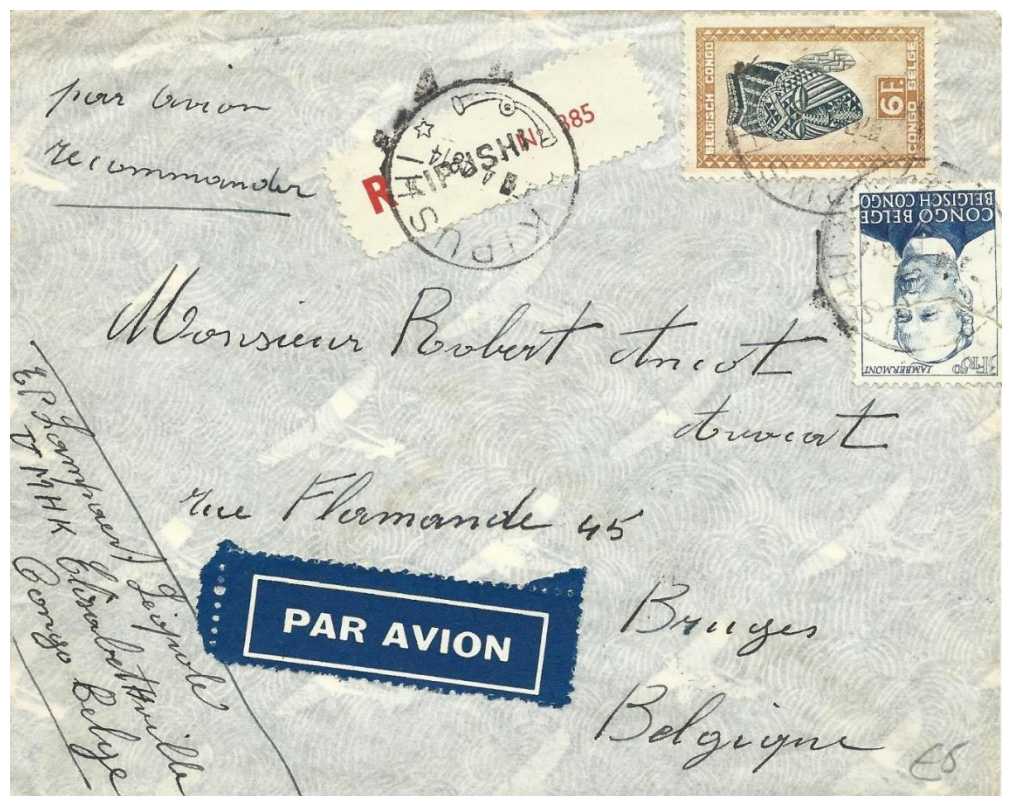 par avion
recommander
R KIPUSHI No 385
KIPUSHI
BELGISCH CONGO
6F
CONGO BELGE
CONGO BELGE
BELGISCH CONGO
LAMBERMONT
3FR50
Monsieur Robert Ancot
Avocat
rue Flamande 45
Bruges
Belgique
PAR AVION
Léopold
UMHK Elisabethville
Congo Belge